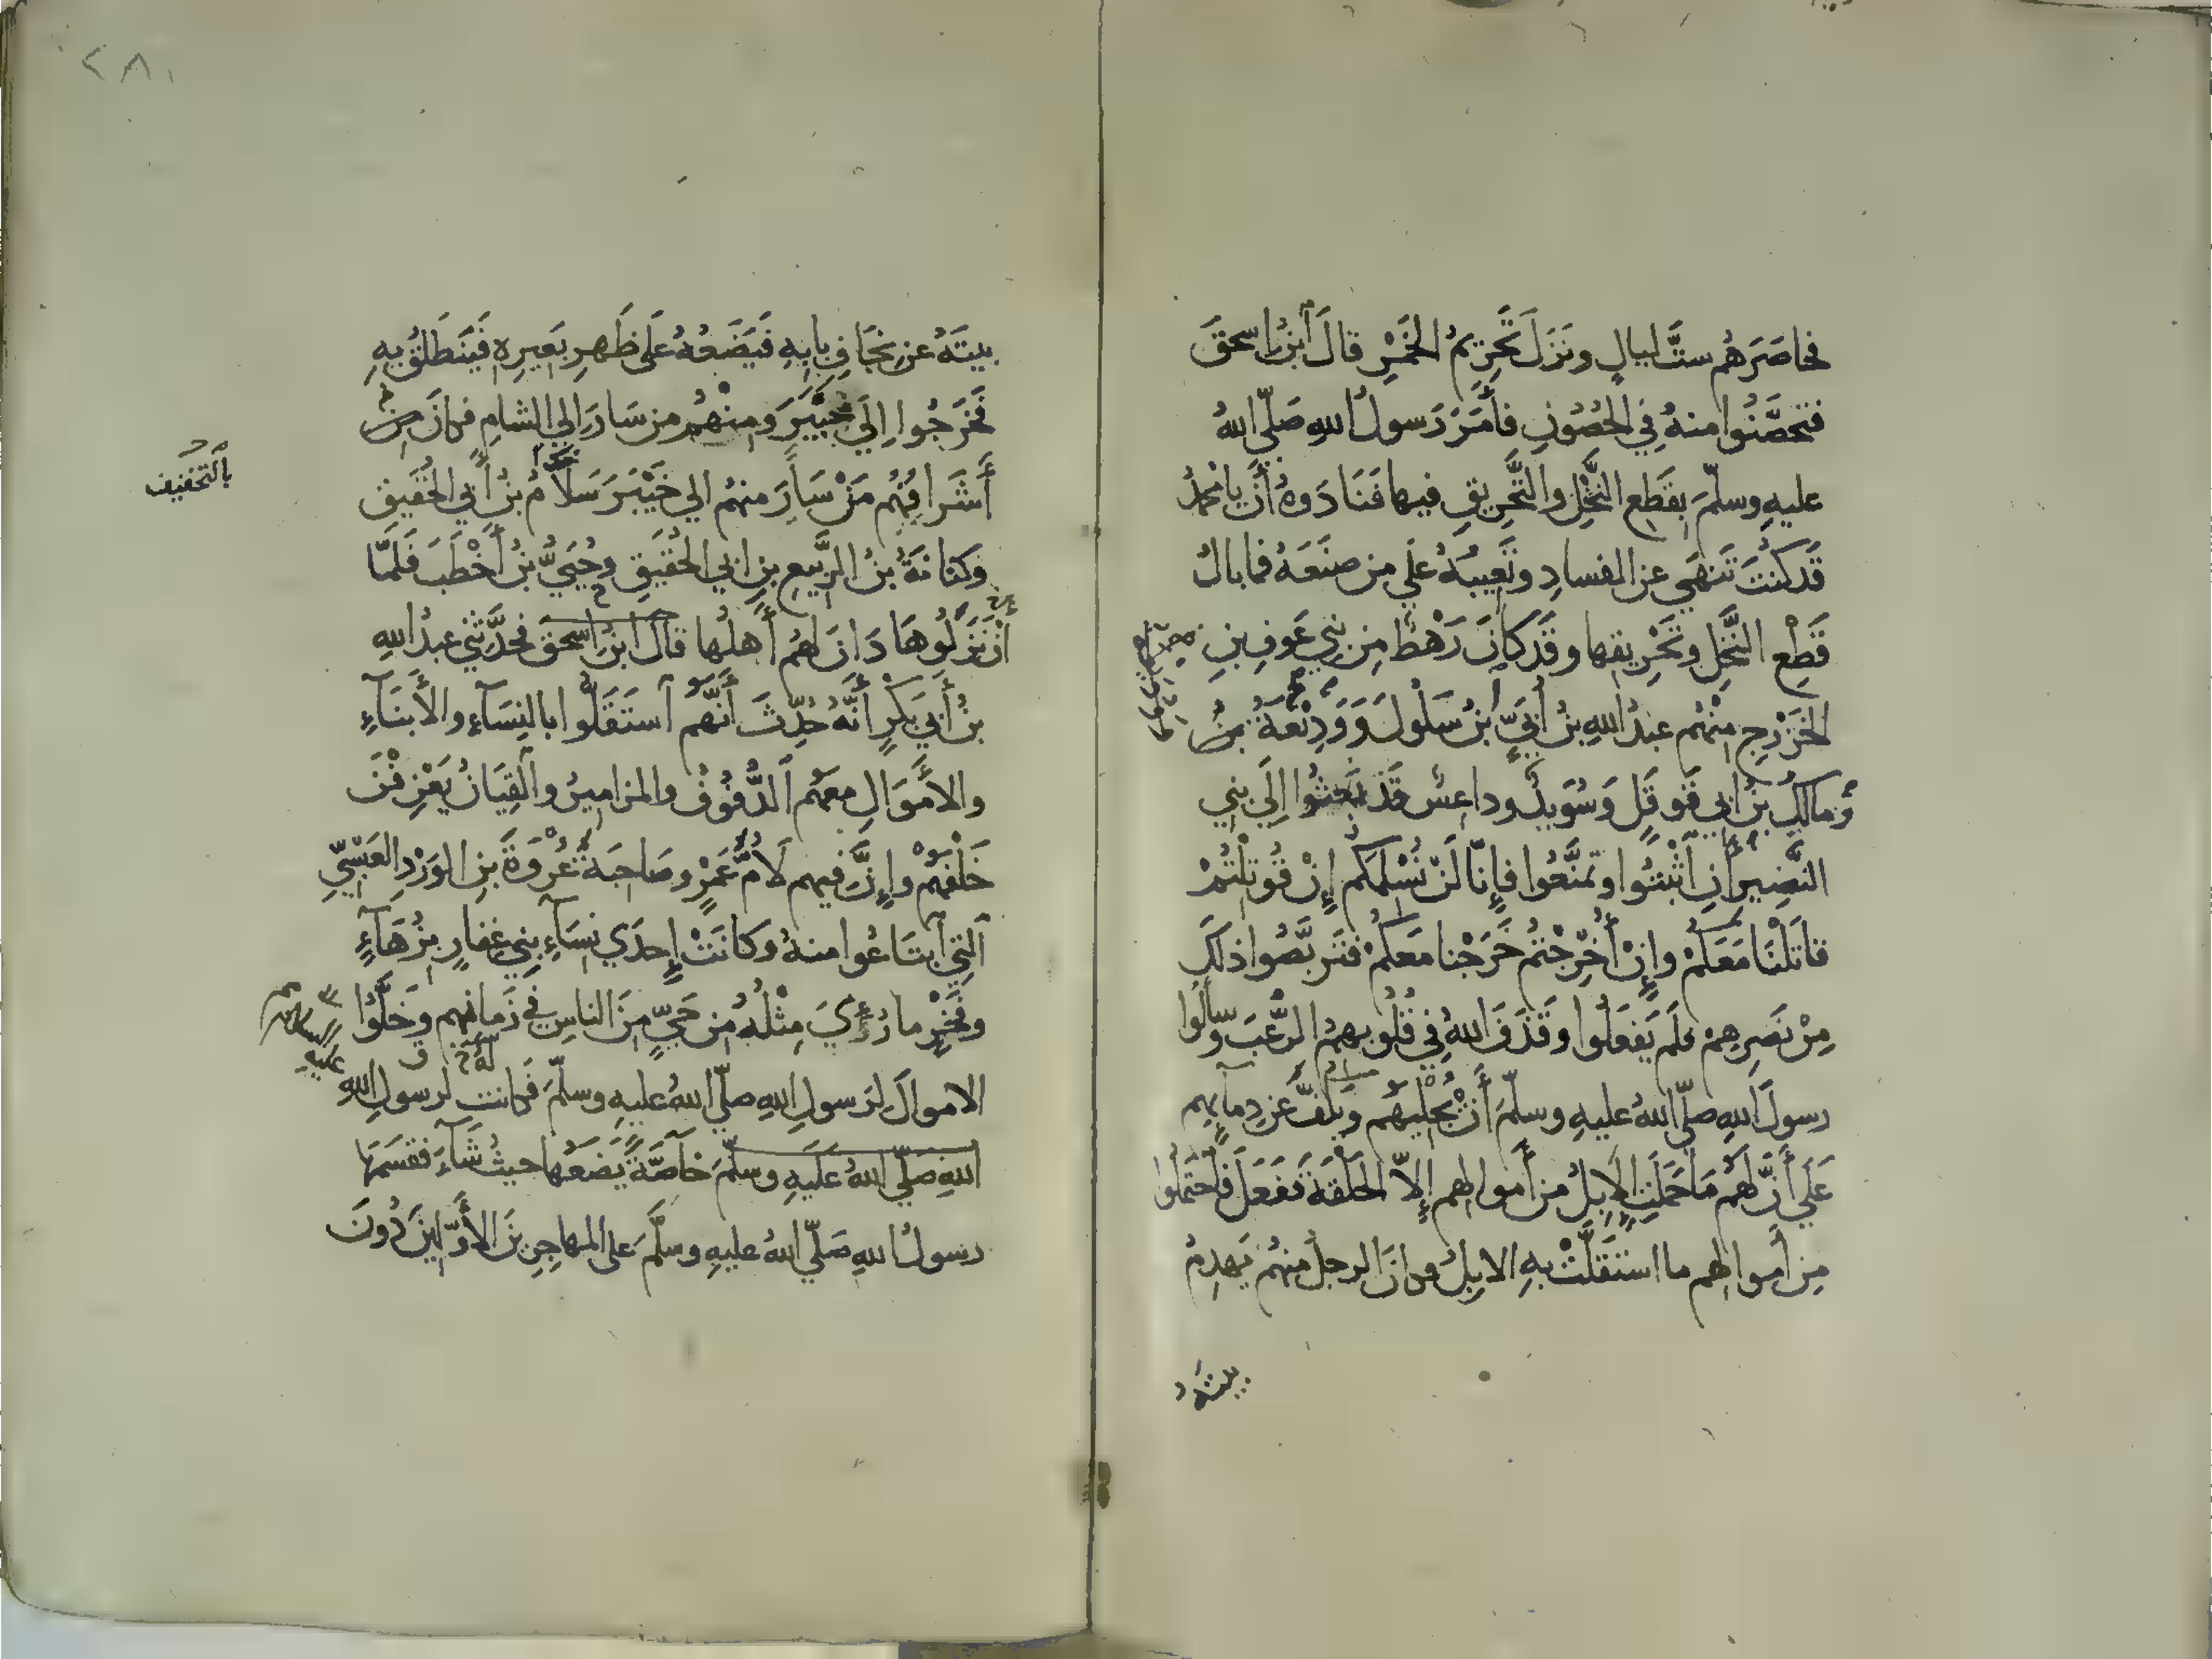 فحاصَرَهُم ستَّ ليالٍ ونَزَلَ تَحْرِيمُ الخَمْرِ قالَ ابْنُ اِسحقَ
فتحصَّنُوا منهُ فِي الحُصُونِ فأَمَرَ رَسولُ اللهِ صَلّي اللهُ
عليهِ وسلّمَ بقَطعِ النَّخْلِ والتَّحْرِيقِ فيها فَنَادَوهُ أَنْ يا محمدُ
قَدْ كنتَ تَنهَي عن الفسادِ وتَعِيبُهُ عَلَي من صنَعَهُ فما بالُ
قَطْعِ النَّخْلِ وتَحْرِيقِها وقَد كانَ رَهْطٌ مِن بَنِي عَوفِ بنِ
الخَزْرجِ مِنْهُم عبدُ اللهِ بنُ أُبَيٍّ ابنُ سَلُولَ وَوَدِيْعَةُ بنُ
ومَالِكُ بنُ ابي قَوقَلٍ وَسُوَيدٌ وداعِسٌ قَدْ بَعَثُوا اِلَي بني
النَّضِيرِ أَنِ اثْبُتُوا وتمنَّعُوا فإِنّا لَنْ نُسْلِمَكم إِنْ قُوتِلْتُمْ
قاتَلْنَا مَعَكُمْ وإِنْ أُخْرِجْتُم خَرَجْنا مَعَكُمْ فتَربَّصُوا ذلكَ
مِنْ نَصرِهِمْ فلَم يَفعَلُوا وقَذَفَ اللهُ فِي قُلُوبِهِمُ الرُّعْبَ وسالُوا
رسولَ اللهِ صلّي اللهُ عليهِ وسلّمَ أَنْ يُجْلِيَهُم ويَكُفَّ عَن دِمآئِهم
عَلَي أَنَّ لَهُم مَا حَمَلَتِ الاِبِلُ من أَموالِهم إِلاّ الحَلْقَةَ فَفَعَلَ فَاحْتَمَلُوا
مِن أموالِهم ما استَقَلَّتْ بهِ الاِبِلُ فكانَ الرجلُ منهُم يَهدِمُ
بيتَهُ عن نِجَافِ بابِهِ فَيَضَعُهُ عَلَي ظَهرِ بَعِيرِهِ فَيَنطَلِقُ بِهِ
فَخَرَجُوا اِلَي خَيْبَرَ وَمِنْهُم من سَارَ اِلي الشامِ فكانَ مِن
أَشرَافِهُم مَنْ سَارَ منهُم الي خَيْبَرَ سَلاَمُ بنُ أَبي الحُقَيقِ
بالتخفيف
وَكنَانَةُ بنُ الرَّبِيعِ بنِ ابي الحُقَيقِ وحُيَيُّ بنُ أَخْطَبَ فَلَمَّا
نَزَلُوهَا دَانَ لَهُم أَهلُها قالَ ابنُ اِسحقَ فحدَّثني عبدُ اللهِ
بنُ أَبِي بَكرٍ أَنَّهُ حُدِّثَ أَنَّهُم استَقَلُّوا بالنِسَآءِ والأَبنَآءِ
والأَموَالِ معهُم الدُّفُوفُ والمزاميرُ والقِيَانُ يَعْزِفْنَ
خَلْفَهُمْ وإِنَّ فيهم لأُمَّ عَمْرٍو صَاحِبَةَ عُرْوَةَ بنِ الوَرْدِ العَبْسِيّ
الَتِي ابتَاعُوا منهُ وكانَتْ إِحدَي نسَآءِ بَنِي غِفارٍ بِزُهَآءٍ
وفَخْرٍ ما رُئِيَ مِثْلُهُ مِن حَيٍّ مِنَ الناسِ في زَمانِهم وَخَلَّوُا
الاموالَ لِرَسولِ اللهِ صلّي اللهُ عليهِ وسلّمَ فكانت لرسولِ اللهِ
اللهِ صلّي اللهُ عَلَيهِ وسلّمَ خآصَّةً يَضَعُها حيثُ شَآءَ فقَسَمَها
رسولُ اللهِ صَلّي اللهُ عليهِ وسلَّمَ عَلى المهاجِرِينَ الأَوَّلِينَ دُونَ